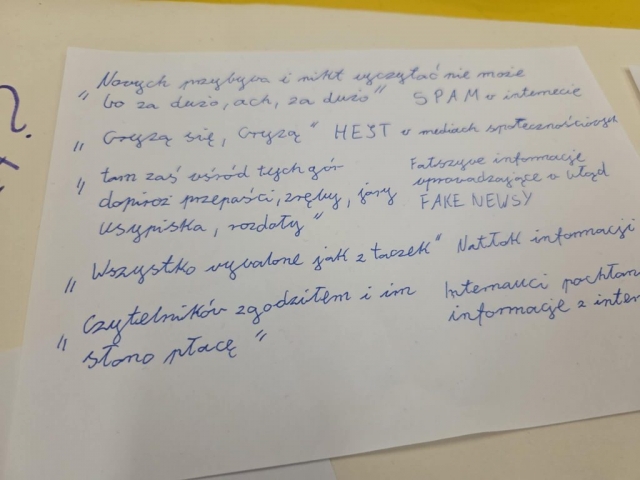 „Nowych przybywa i nikt wyczytać nie może
bo za dużo, ach, za dużo" SPAM w internecie
„Gryzą się, Gryzą" HEJT w mediach społecznościowych
„tam zaś wśród tych gór
dopiroż przepaści, zręby, jary
usypiska, rozdoły"
Fałszywe informacje
wprowadzające w błąd
FAKE NEWSY
„Wszystko wywalone jak z taczek" Natłok informacji
„Czytelników zgodziłem i im
słono płacę"
Internauci pochłan
informacje z inter
?